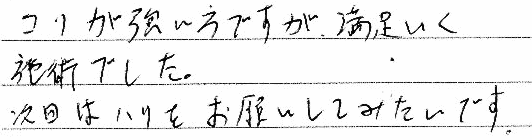 コリが強い方ですが、満足いく
施術でした。
次回はハリをお願いしてみたいです。